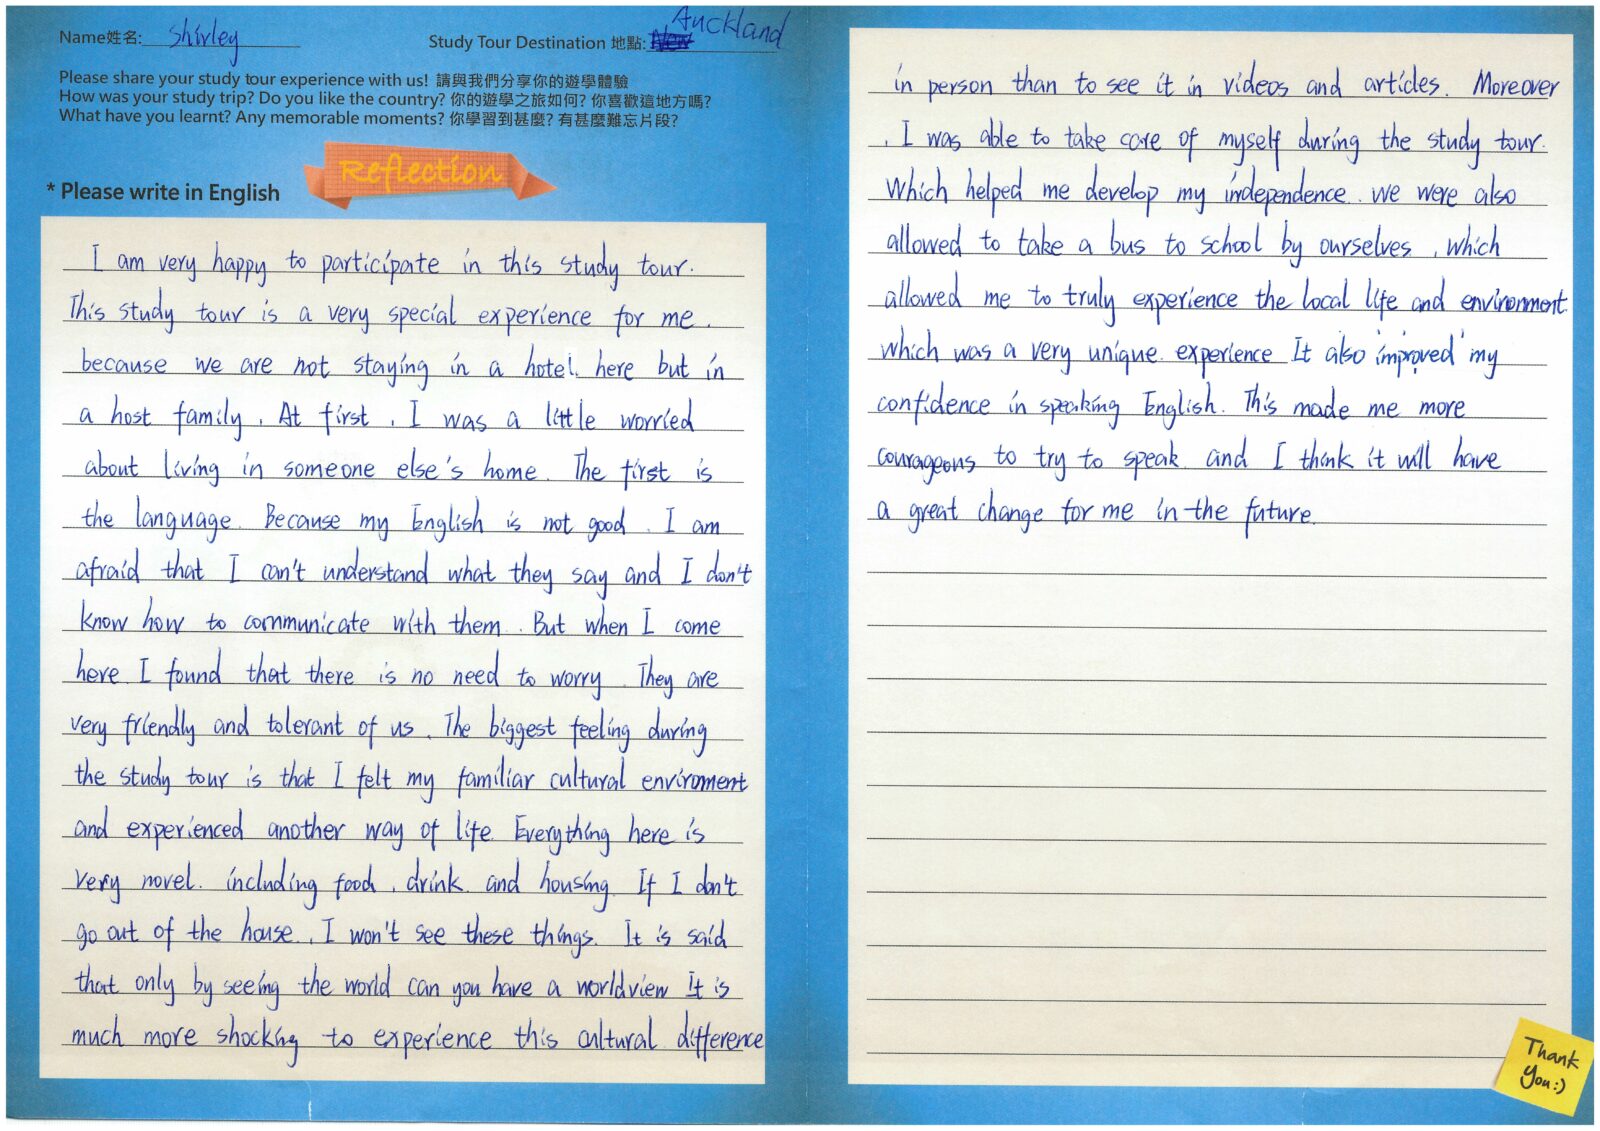 Name姓名: Shirley
Study Tour Destination 地點: Auckland
Please share your study tour experience with us! 請與我們分享你的遊學體驗
How was your study trip? Do you like the country? 你的遊學之旅如何? 你喜歡這地方嗎?
What have you learnt? Any memorable moments? 你學習到甚麼? 有甚麼難忘片段?
Reflection
* Please write in English
I am very happy to participate in this study tour.
This study tour is a very special experience for me,
because we are not staying in a hotel here but in
a host family. At first, I was a little worried
about living in someone else's home. The first is
the language. Because my English is not good, I am
afraid that I can't understand what they say and I don't
know how to communicate with them. But when I come
here I found that there is no need to worry. They are
very friendly and tolerant of us. The biggest feeling during
the study tour is that I felt my familiar cultural enviroment
and experienced another way of life. Everything here is
very novel. including food, drink and housing. If I don't
go out of the house, I won't see these things. It is said
that only by seeing the world can you have a worldview It is
much more shocking to experience this cultural difference
in person than to see it in videos and articles. Moreover
, I was able to take care of myself during the study tour.
Which helped me develop my independence. We were also
allowed to take a bus to school by ourselves, which
allowed me to truly experience the local life and environment.
which was a very unique experience It also improved my
confidence in speaking English. This made me more
courageous to try to speak and I think it will have
a great change for me in the future.
Thank
You:)